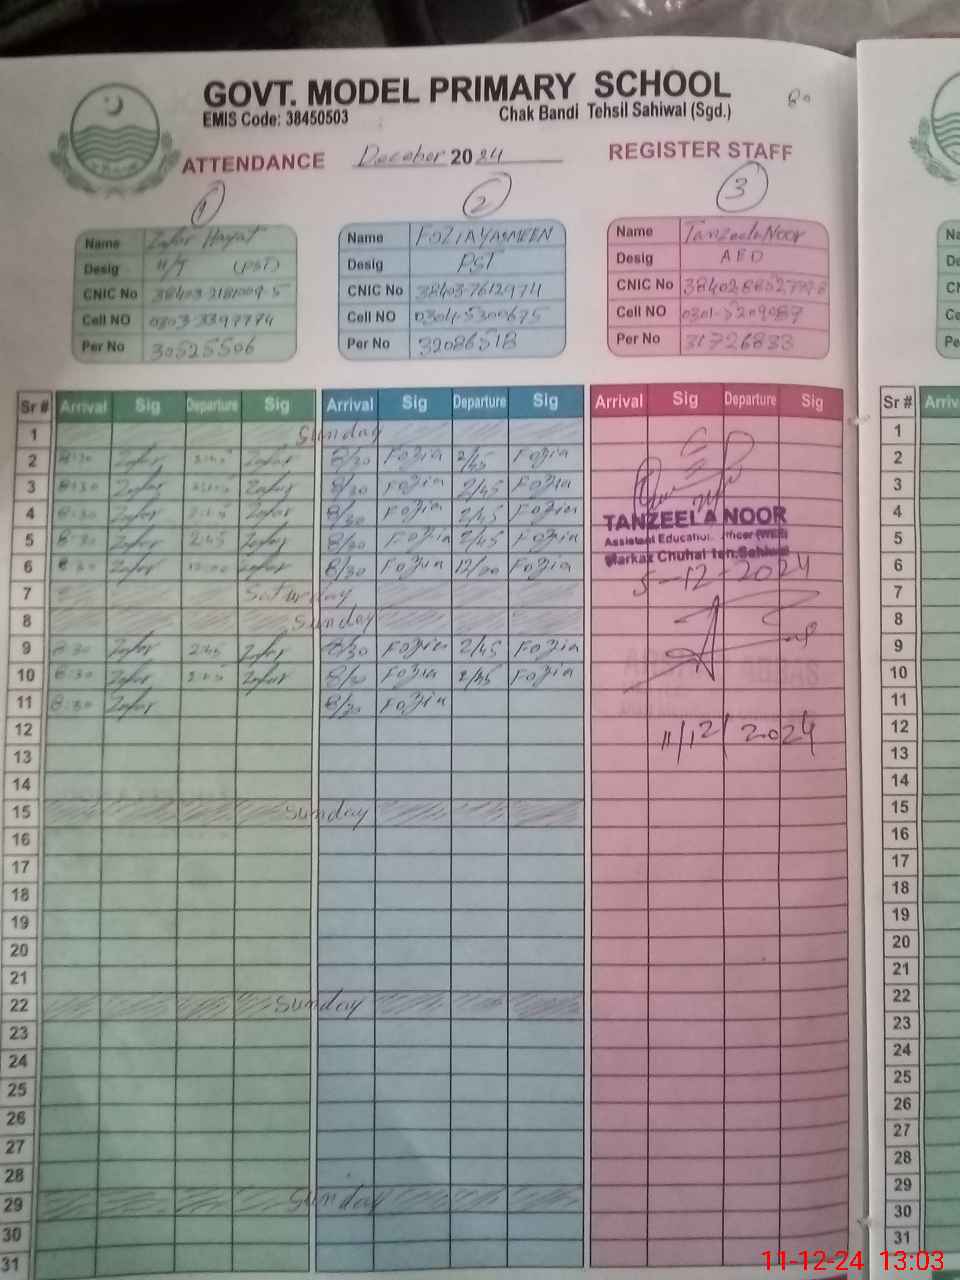 GOVT. MODEL PRIMARY SCHOOL
EMIS Code: 38450503 Chak Bandi Tehsil Sahiwal (Sgd.)
ATTENDANCE December 2024 REGISTER STAFF
1 2 3
Name Zafar Hayat Name FOZIA YASMEEN Name Tanzeela Noor
Desig H/T (PST) Desig PST Desig AEO
CNIC No CNIC No 38403-7612974 CNIC No
Cell NO 0303-3397774 Cell NO 0304-5300675 Cell NO 0301-5209087
Per No 30525506 Per No 32086518 Per No 31726833
Sr # Arrival Sig Departure Sig Arrival Sig Departure Sig Arrival Sig Departure Sig Sr #
1 Sunday 1
2 8:30 Zafar 2:45 Zafar 8/30 Fozia 2/45 Fozia 2
3 8:30 Zafar 2:45 Zafar 8/30 Fozia 2/45 Fozia 3
4 8:30 Zafar 2:45 Zafar 8/30 Fozia 2/45 Fozia TANZEELA NOOR 4
5 8:30 Zafar 2:45 Zafar 8/30 Fozia 2/45 Fozia Assistant Education Officer (WEE) 5
6 8:30 Zafar 12:00 Zafar 8/30 Fozia 12/00 Fozia Markaz Chuhal Teh.Sahiwal 6
5-12-2024
7 Saturday 7
8 Sunday 8
9 8:30 Zafar 2:45 Zafar 8/30 Fozia 2/45 Fozia 9
10 8:30 Zafar 2:45 Zafar 8/30 Fozia 2/45 Fozia 10
11 8:30 Zafar 8/30 Fozia 11
12 11/12/2024 12
13 13
14 14
15 Sunday 15
16 16
17 17
18 18
19 19
20 20
21 21
22 Sunday 22
23 23
24 24
25 25
26 26
27 27
28 28
29 Sunday 29
30 30
31 31
11-12-24 13:03